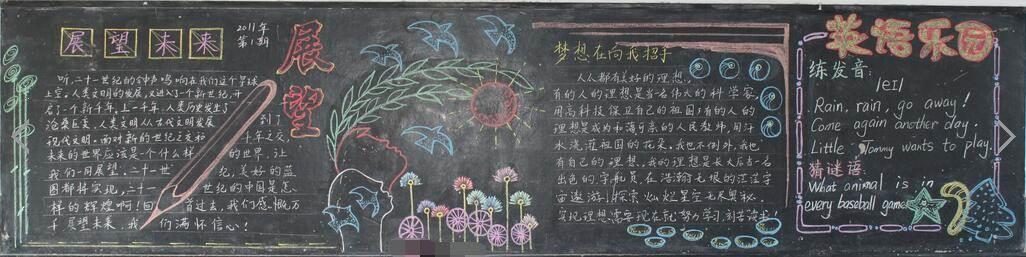 展望未来
2011年
第1期
展望
听,二十一世纪的钟声鸣响在我们这个星球
上空,人类文明的发展,又进入了一个新世纪,开
启了一个新千年,上一千年,人类历史发生了
沧桑巨变,人类文明从古代文明发展到了
现代文明,面对新的世纪之交和千年之交,
未来的世界应该是个什么样的世界,让
我们一同展望,二十一世纪,美好的蓝
图都将实现,二十一世纪的中国是怎
样的辉煌啊!回首过去,我们感慨万
千展望未来,我们满怀信心!
梦想在向我招手
人人都有美好的理想,
有的人的理想是当名伟大的科学家,
用高科技保卫自己的祖国;有的人的
理想是成为和蔼可亲的人民教师,用汗
水浇灌祖国的花朵,我也不例外,我也
有自己的理想,我的理想是长大后当一名
出色的宇航员,在浩瀚无垠的茫茫宇
宙遨游,探索灿烂星空无尽奥秘,
实现理想,需要现在就努力学习,刻苦读书
英语乐园
练发音:
/eɪ/
Rain, rain, go away!
Come again another day.
Little Tommy wants to play.
猜谜语:
What animal is in
every baseball game